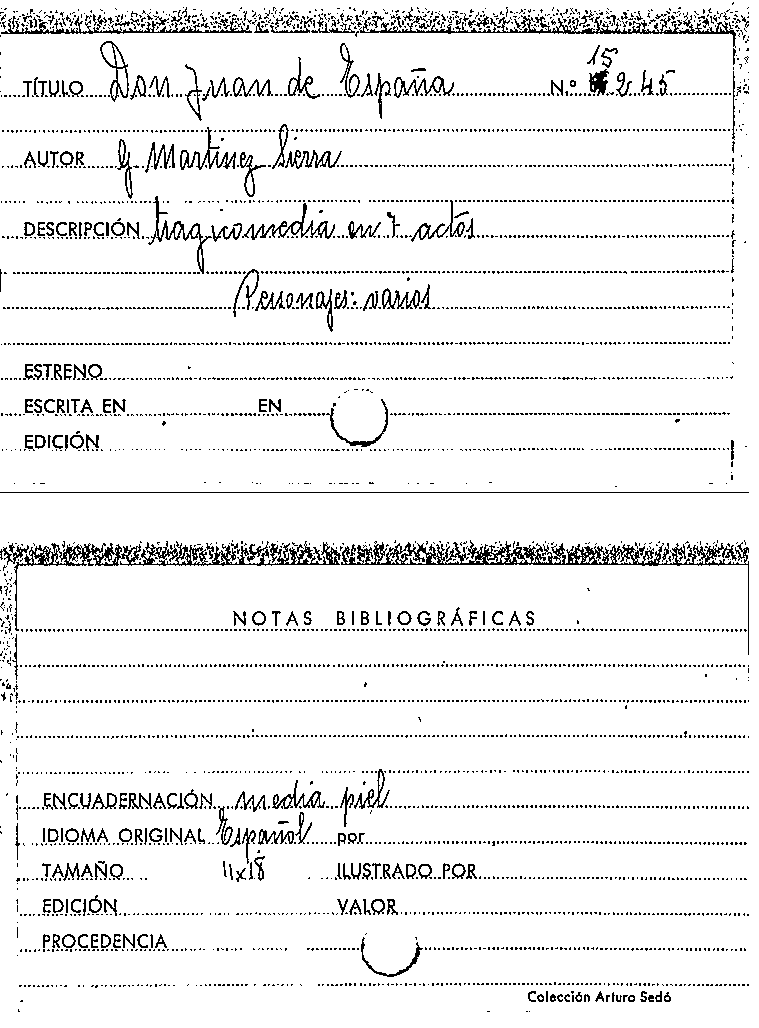 15
TÍTULO Don Juan de España N.º 245
AUTOR G Martinez Sierra
DESCRIPCIÓN tragicomedia en 7 actos
Personajes: varios
ESTRENO
ESCRITA EN EN
EDICIÓN
NOTAS BIBLIOGRÁFICAS
ENCUADERNACIÓN media piel
IDIOMA ORIGINAL Español por
TAMAÑO 11x18 ILUSTRADO POR
EDICIÓN VALOR
PROCEDENCIA
Colección Arturo Sedó